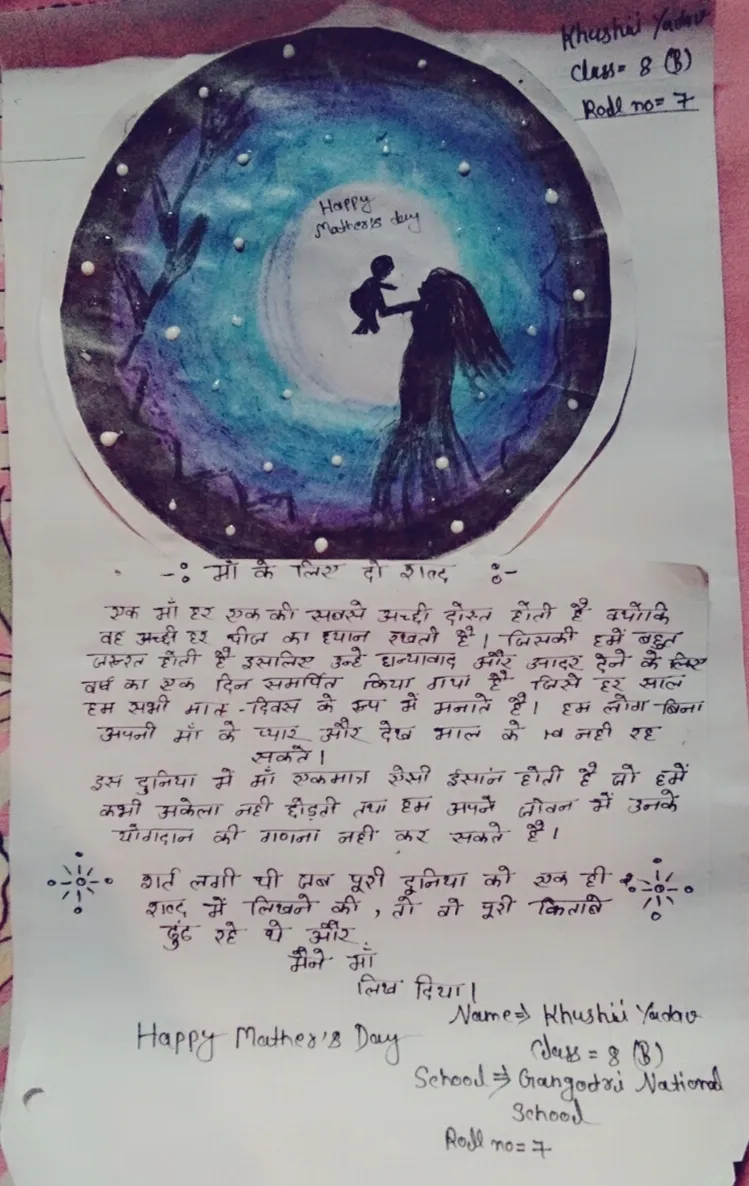 Khushii Yadav
Class= 8 (B)
Roll no= 7
Happy
Mather's day
-: माँ के लिए दो शब्द :-
एक माँ हर एक की सबसे अच्छी दोस्त होती है क्योकि
वह अच्छी हर चीज का ध्यान रखती है। जिसकी हमें बहुत
जरूरत होती है इसलिए उन्हे धन्यावाद और आदर देने के लिए
वर्ष का एक दिन समर्पित किया गया है जिसे हर साल
हम सभी मातृ-दिवस के रूप में मनाते है। हम लोग बिना
अपनी माँ के प्यार और देख भाल के नही रह
सकते।
इस दुनिया में माँ एकमात्र ऐसी ईसान होती है जो हमें
कभी अकेला नही छोड़ती तथा हम अपने जीवन में उनके
योगदान की गणना नही कर सकते है।
शर्त लगी थी जब पूरी दुनिया को एक ही
शब्द में लिखने की, तो वो पूरी किताबे
ढुंढ रहे थे और
मैने माँ
लिख दिया।
Name⇒ Khushii Yadav
Happy Mather's Day
Class = 8 (B)
School ⇒ Gangotri National
School
Roll no= 7